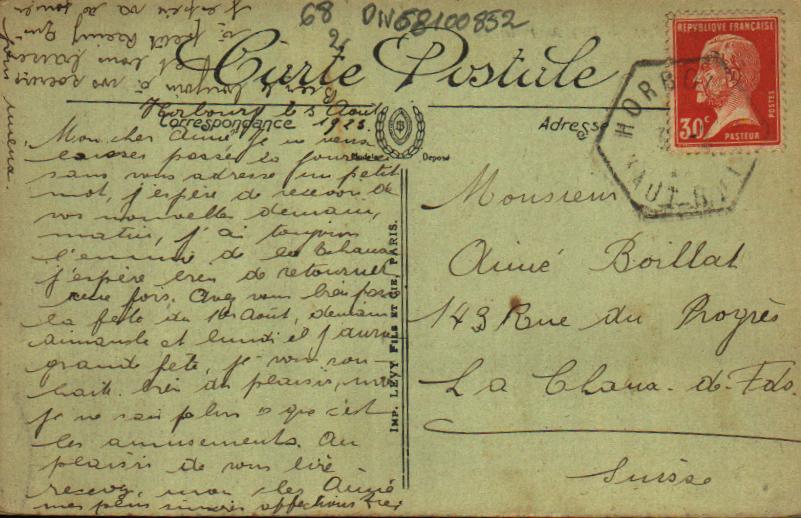 68 DIV68100852
2,
Carte Postale
Horbourg le 3 Août
Correspondance 1925.
Adresse
Modèle Déposé
Mon cher Aimé je ne veux
laisser passer la journée
sans vous adresser un petit
mot, j'espère de recevoir de
vos nouvelles demain,
matin, j'ai toujours
l'ennui de la Chaux
j'espère bien de retourner
une fois. Avez vous bien fait
la fête du 1er Août, demain
dimanche et lundi il y aura
grande fête, je vous sou-
haite bien du plaisir, moi
je ne sais plus ce que c'est
les amusements. Au
plaisir de vous lire
recevez, mon cher Aimé
mes plus sincères affections
IMP. LÉVY FILS ET CIE, PARIS.
Monsieur
Aimé Boillat
143 Rue du Progrès
La Chaux-de-Fds.
Suisse
RÉPUBLIQUE FRANÇAISE
30c
POSTES
PASTEUR
HORBOURG
HAUT-RHIN